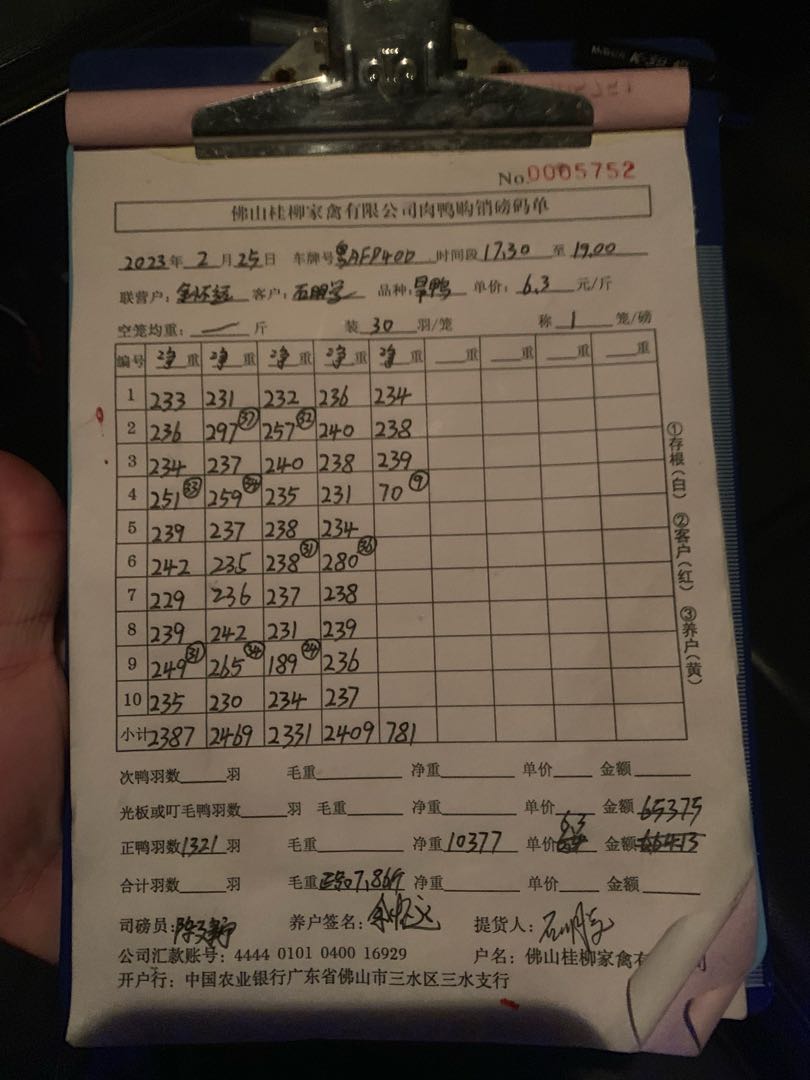 No.0005752
佛山桂柳家禽有限公司肉鸭购销磅码单
2023年 2 月 25 日 车牌号 粤AFP40D 时间段 17.30 至 19.00
联营户: 客户: 石明 品种: 旱鸭 单价: 6.3 元/斤
空笼均重: — 斤 装 30 羽/笼 称 1 笼/磅
编号 净重 净重 净重 净重 净重 重 重 重 重
1 233 231 232 236 234
2 236 297 37 257 32 240 238
3 234 237 240 238 239
4 251 33 259 34 235 231 70 9
5 239 237 238 234
6 242 235 238 31 280 36
7 229 236 237 238
8 239 242 231 239
9 249 31 265 34 189 24 236
10 235 230 234 237
小计 2387 2469 2331 2409 781
①存根(白) ②客户(红) ③养户(黄)
次鸭羽数 羽 毛重 净重 单价 金额
光板或叮毛鸭羽数 羽 毛重 净重 单价 金额 65375
正鸭羽数 1321 羽 毛重 净重 10377 单价 6.3 金额 66413
合计羽数 羽 毛重 7.869 净重 单价 金额
司磅员: 养户签名: 提货人:
公司汇款账号: 4444 0101 0400 16929 户名: 佛山桂柳家禽有 司
开户行: 中国农业银行广东省佛山市三水区三水支行